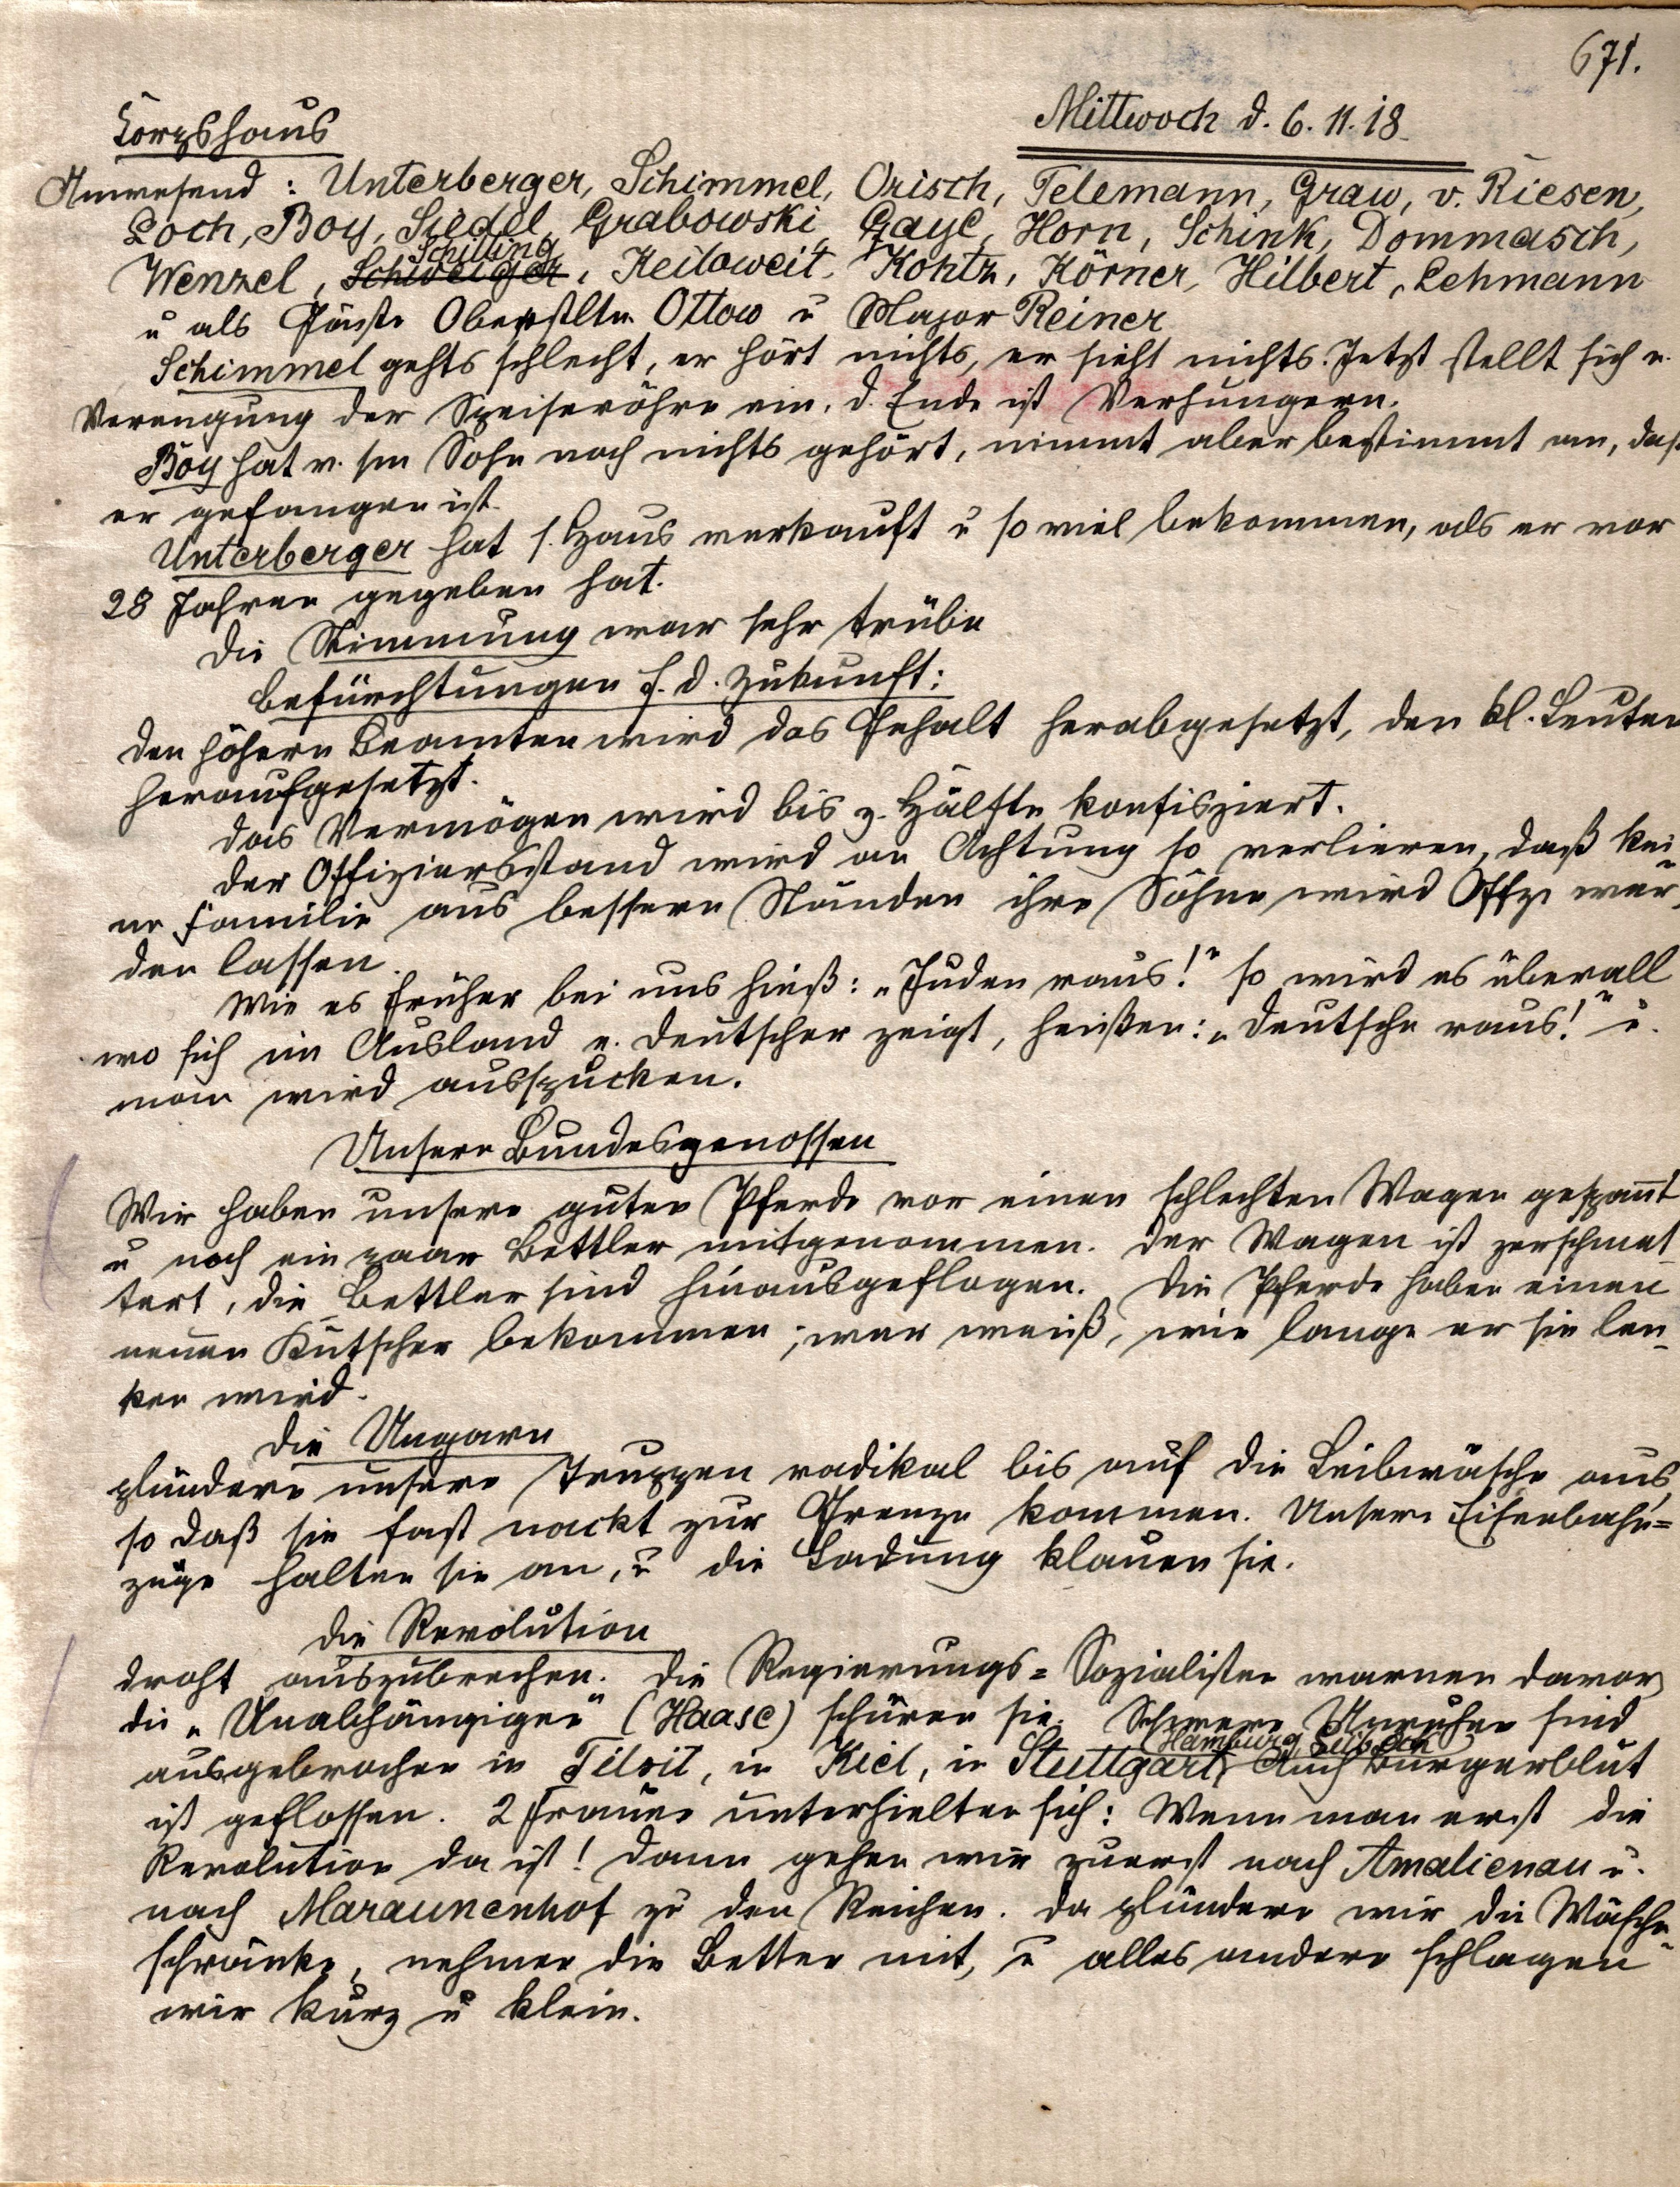 671.
Korpshaus
Mittwoch d. 6.11.18
Anwesend: Unterberger, Schimmel, Orisch, Telemann, Graw, v. Riesen,
Loch, Boy, Siedel, Grabowski, Gayl, Horn, Schink, Dommasch,
Schilling
Wenzel, Schweiger, Keiloweit, Kohtz, Körner, Hilbert, Lehmann
u als Gäste Oberstltn Ottow u Major Reiner
Schimmel gehts schlecht, er hört nichts, er sieht nichts. Jetzt stellt sich e.
Verengung der Speiseröhre ein, d. Ende ist Verhungern.
Boy hat v. sm Sohn noch nichts gehört, nimmt aber bestimmt an, daß
er gefangen ist.
Unterberger hat s. Haus verkauft u so viel bekommen, als er vor
28 Jahren gegeben hat.
Die Stimmung war sehr trübe
Befürchtungen f. d. Zukunft:
Den höhern Beamten wird das Gehalt herabgesetzt, den kl. Leuten
heraufgesetzt.
Das Vermögen wird bis z. Hälfte konfisziert.
Der Offiziersstand wird an Achtung so verlieren, daß kei-
ne Familie aus bessern Ständen ihre Söhne wird Offz. wer-
den lassen.
Wie es früher bei uns hieß: „Juden raus!" so wird es überall
wo sich im Ausland e. Deutscher zeigt, heißen: „Deutsche raus!" u.
man wird ausspucken.
Unsere Bundesgenossen
Wir haben unsere guten Pferde vor einen schlechten Wagen gespannt
u noch ein paar Bettler mitgenommen. Der Wagen ist zerschmet-
tert, die Bettler sind hinausgeflogen. Die Pferde haben einen
neuen Kutscher bekommen; wer weiß, wie lange er sie len-
ken wird.
Die Ungarn
plündern unsere Truppen radikal bis auf die Leibwäsche aus,
so daß sie fast nackt zur Grenze kommen. Unsere Eisenbahn=
züge halten sie an, u die Ladung klauen sie.
Die Revolution
droht auszubrechen. Die Regierungs=Sozialisten warnen davor,
die „Unabhängigen" (Haase) schüren sie. Schwere Unruhen sind
(Hamburg, Lübeck)
ausgebrochen in Tilsit, in Kiel, in Stuttgart, Auch Bürgerblut
ist geflossen. 2 Frauen unterhielten sich: Wenn man erst die
Revolution da ist! Dann gehen wir zuerst nach Amalienau u.
nach Maraunenhof zu den Reichen. Da plündern wir die Wäsche-
schränke, nehmen die Betten mit, u alles andere schlagen
wir kurz u klein.